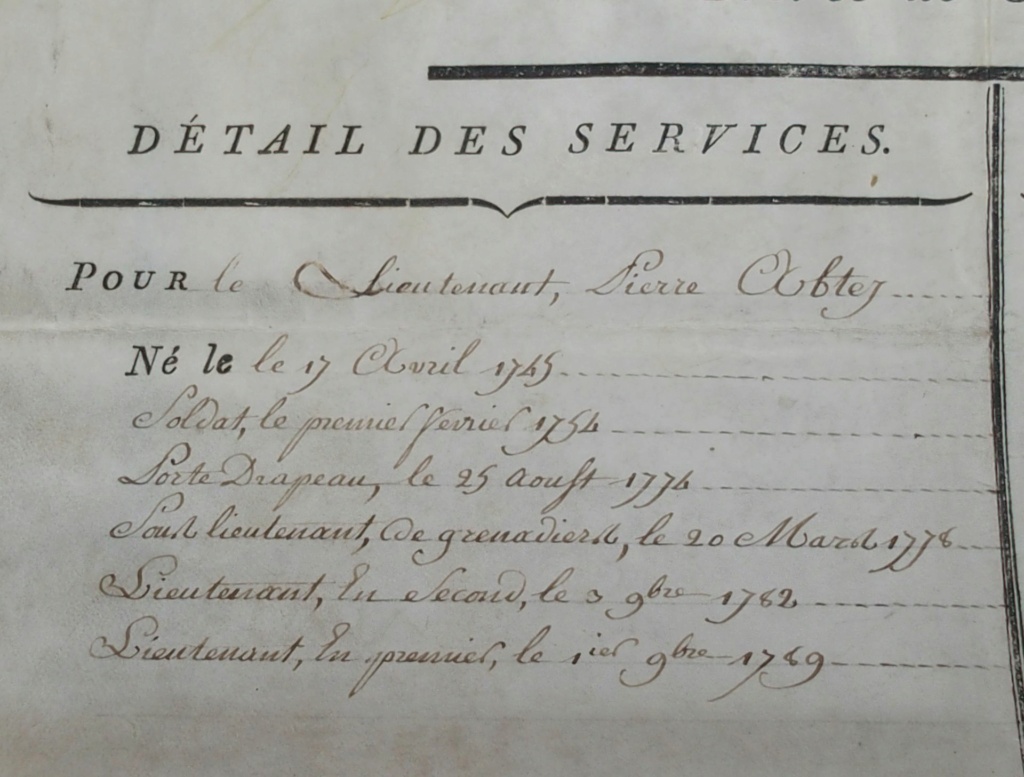 DÉTAIL DES SERVICES.
POUR le Lieutenant, Pierre Abtey
Né le le 17 Avril 1745
Soldat, le premier fevrier 1754
Porte Drapeau, le 25 Aoust 1774
Sous lieutenant, de grenadiers, le 20 Mars 1778
Lieutenant, En Second, le 3 9bre 1782
Lieutenant, En premier, le 1ier 9bre 1789